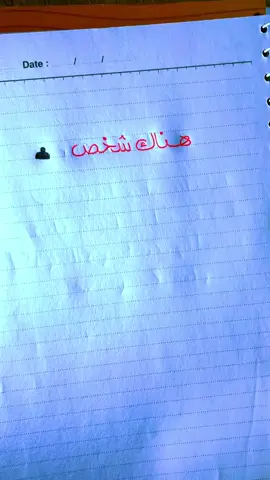 Date :    /    /
هناك شخص :